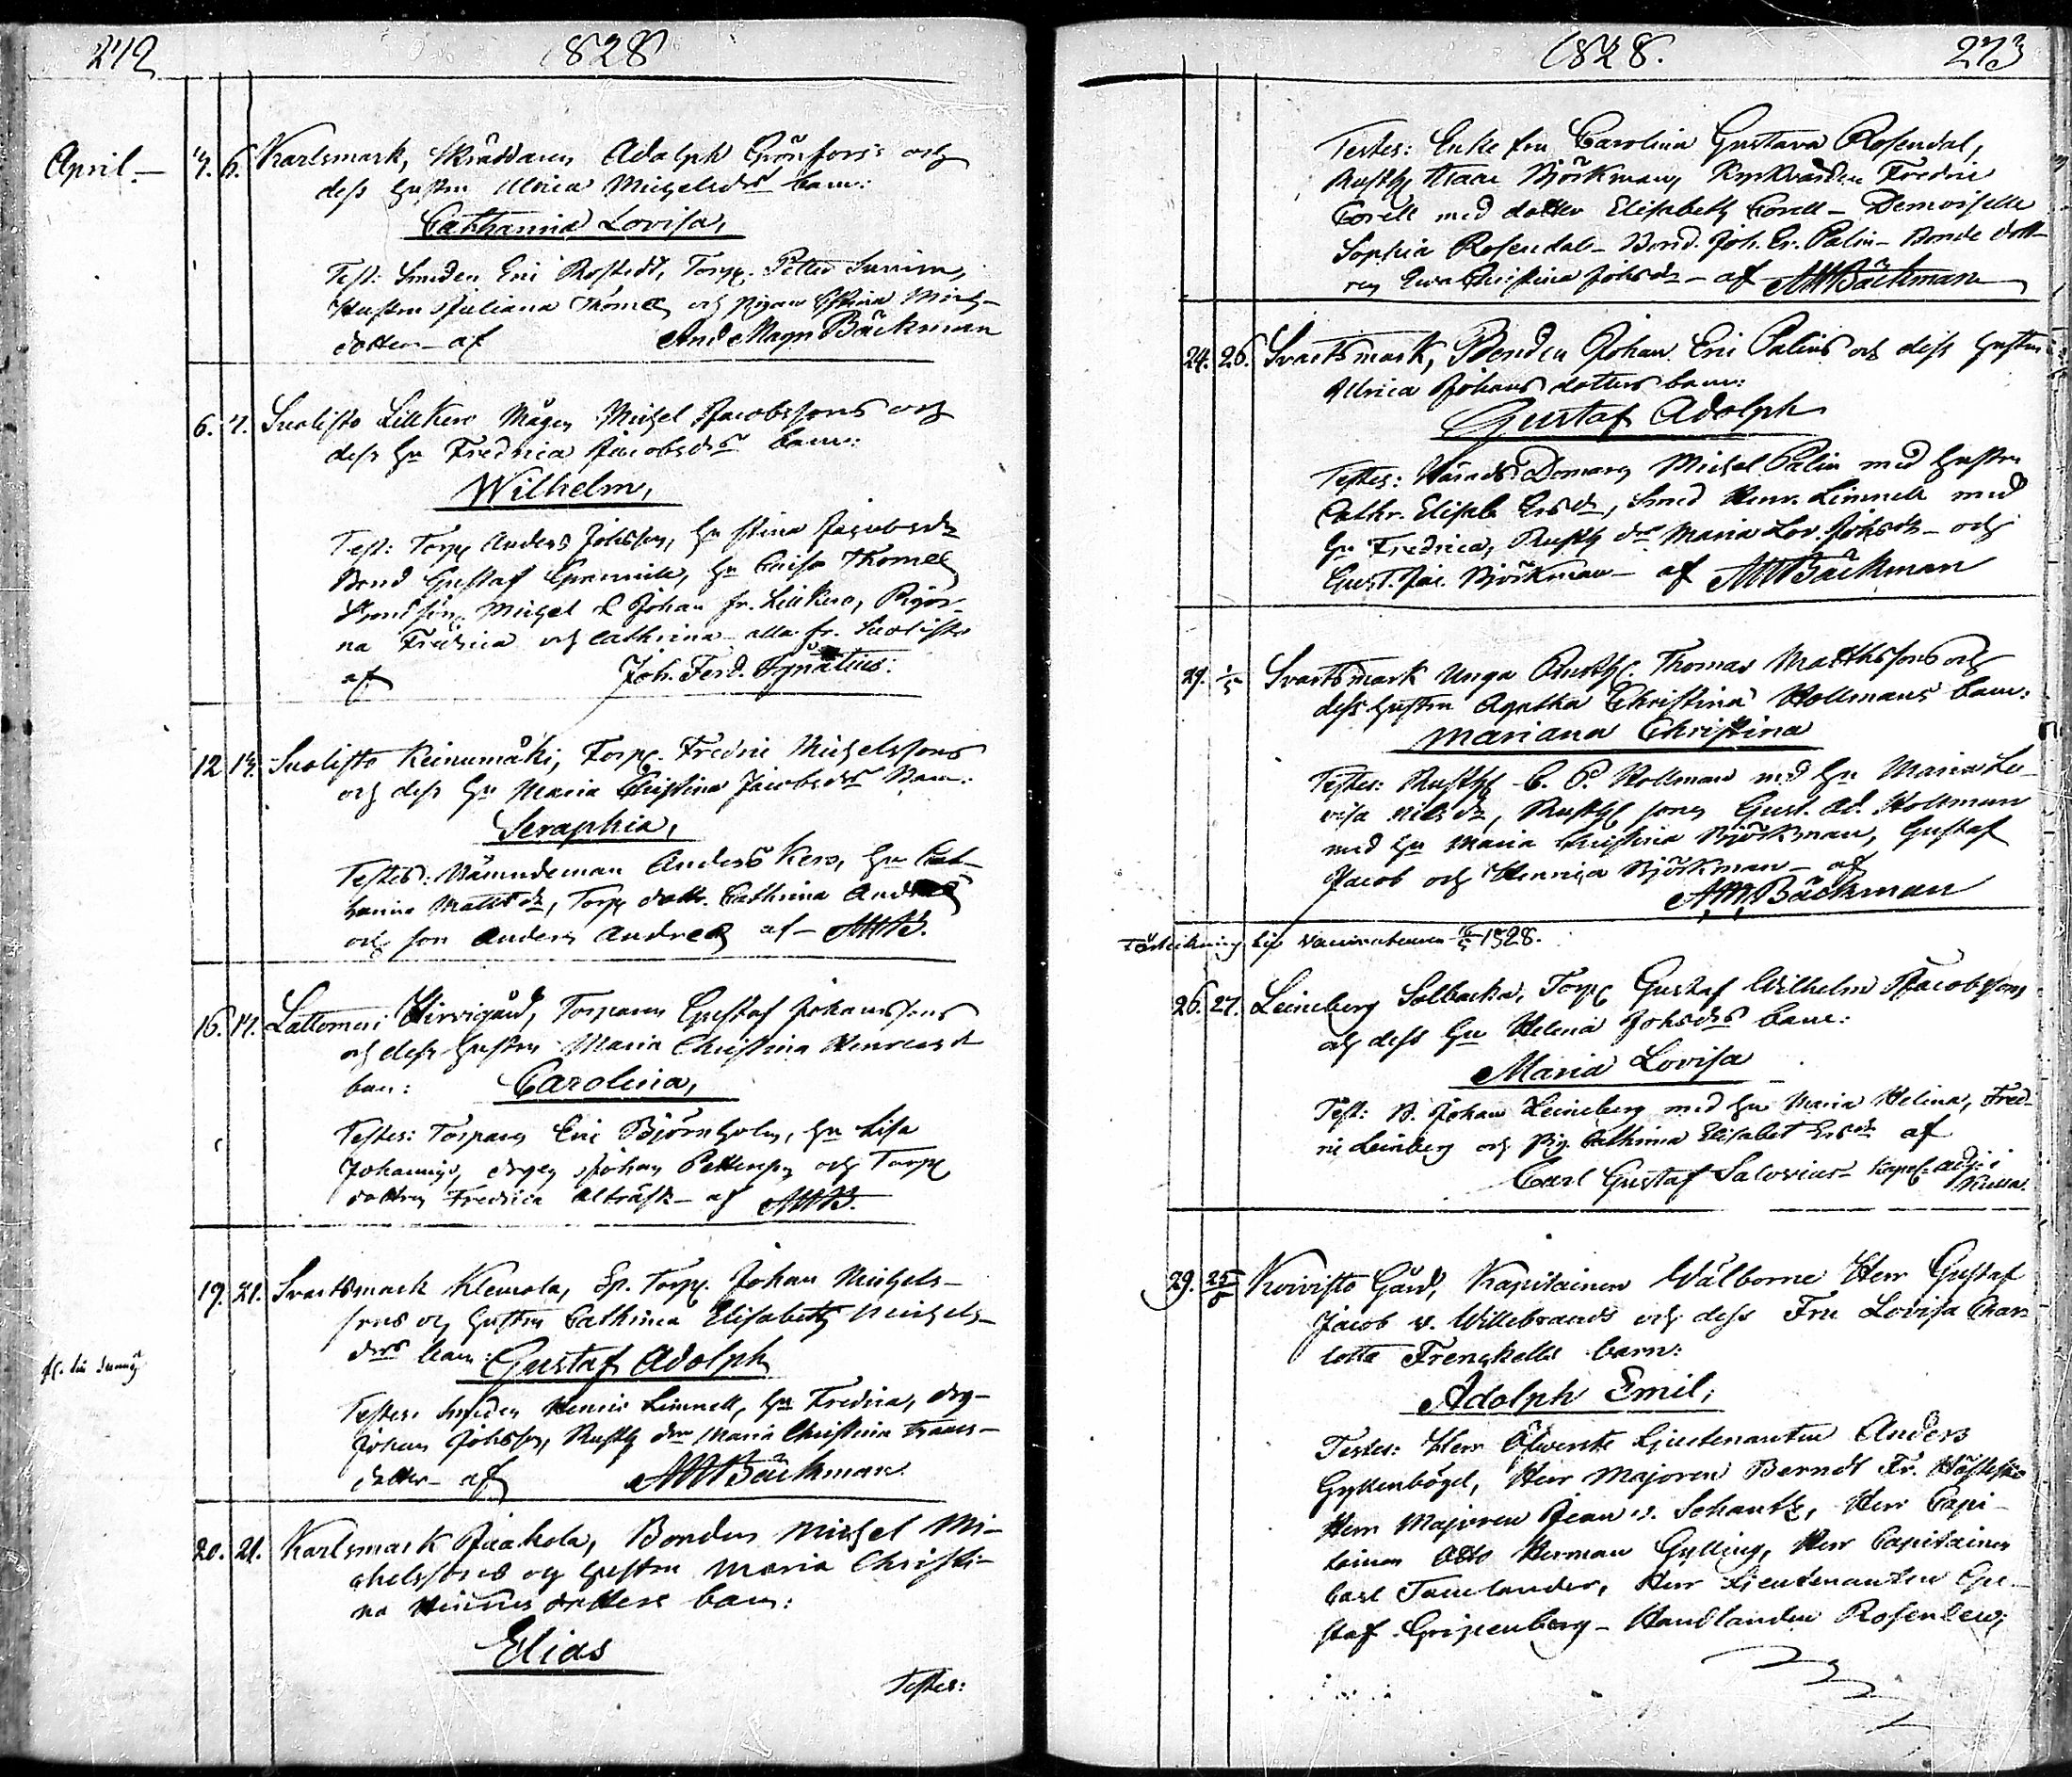 272 1828
April.— 4. 6. Karlsmark, Skräddaren Adolph Grönfors's och
dess hustru Ulrica Michelsdrs barn:
Catharina Lovisa,
Test: Smeden Eric Rostedt, Torp. Petter
Hustru Juliana Thomeæ och pigan Stina Mich-
dotter – af And Magn Bäckman
6. 7. Suolisto Lillkero Mågen Michel Jacobssons och
dess Hu Fredrica Jacobsdrs barn:
Wilhelm,
Test: Torp Anders Johsson, Hu Stina Jacobsdr
Bond Gustaf Hu Caisa Thomeæ
Michel & Johan fr. Lillkero, Pigor-
na Fredrica och Cathrina alla fr. Suolisto
af Joh. Ferd. Ignatius.
12 14. Suolisto Keinumäki, Torp. Fredric Michelssons
och dess Hu Maria Christina Jacobsdrs Barn:
Seraphia,
Testes: Nämndeman Anders Kero, Hu Cat-
harina Mattsdr, Torp dottr. Cathrina Andreæ
och son Anders Andreæ af – AMB.
16. 17. Lattomeri Hirvigård, Torparen Gustaf Johanssons
och dess hustru Maria Christina Henricsdr
barn: Carolina,
Testes: Torparen Eric Björnholm, Hu Lisa
drgen Johan Pettersson och Torp
dottren Fredrica Alträsk – af AMB.
19. 21. Svartsmark Klemola, Sp. Torp. Johan Michels-
sons och hustru Cathrina Elisabeth Michels-
drs barn: Gustaf Adolph
Testes: Smeden Henric Limnell, Hu Fredrica, drg-
Johan Johsson, Rusth dr Maria Christina Frans-
dotter – af AMBäckman
20. 21. Karlsmark Jaakola, Bonden Michel Mi-
chelssons och hustru Maria Christi-
na Henrics dotters barn:
Elias
Testes:
1828. 273
Testes: Enke fru Carolina Gustava Rosendal,
Rusth Isaac Björkman, Kyrkvärden Fredric
Corell med dotter Elisabeth Corell – Demoiselle
Sophia Rosendal – Bond. Joh. Er. Palin – Bonde dott-
ren Eva Christina Johsdr – af AMBäckman
24. 26. Svartsmark, Bonden Johan Eric Palins och dess hustru
Ulrica Johans dotters barn:
Gustaf Adolph
Testes: Härads Domaren Michel Palin med hustru
Cathr. Elisab Ersdr, Smed Henr. Limnell med
Hu Fredrica, Rusth dr Maria Lov. Johsdr – och
Gust. Jac. Björkman – af AMBäckman
29. 1/5 Svartsmark Unga Rusth. Thomas Matthssons och
dess hustru Agatha Christina Hollmans barn:
Mariana Christina
Testes: Rusth C. P. Hollman med Hu Maria Lo-
visa Nilsdr, Rusth sonen Gust. Ad. Hollman
med Hu Maria Christina Björkman, Gustaf
Jacob och Henrica Björkman – af
AMBäckman
1828.
26. 27. Leineberg Solbacka, Torp Gustaf Wilhelm Jacobssons
och dess Hu Helena Johsdrs barn:
Maria Lovisa
Test: B. Johan Leineberg med Hu Maria Helena, Fred-
ric Leinberg och Pig. Cathrina Elisabet Ersdr af
Carl Gustaf Salovius – Kapel. adj: i
29. 25/5 Koivisto Gård, Kapitainen Wälborne Herr Gustaf
Jacob v. Willebrands och dess Fru Lovisa Char-
lotta Frenckells barn:
Adolph Emil,
Testes: Herr Öfverste Lieutenanten Anders
Gyllenbögel, Herr Majoren Berndt Fr. Hästesko
Herr Majoren Jean v. Schantz, Herr Capi-
tainen Otto Herman Gylling, Herr Capitainen
Carl Taucander, Herr Lieutenanten Gu-
staf Gripenberg – Handlanden Rosenlew,